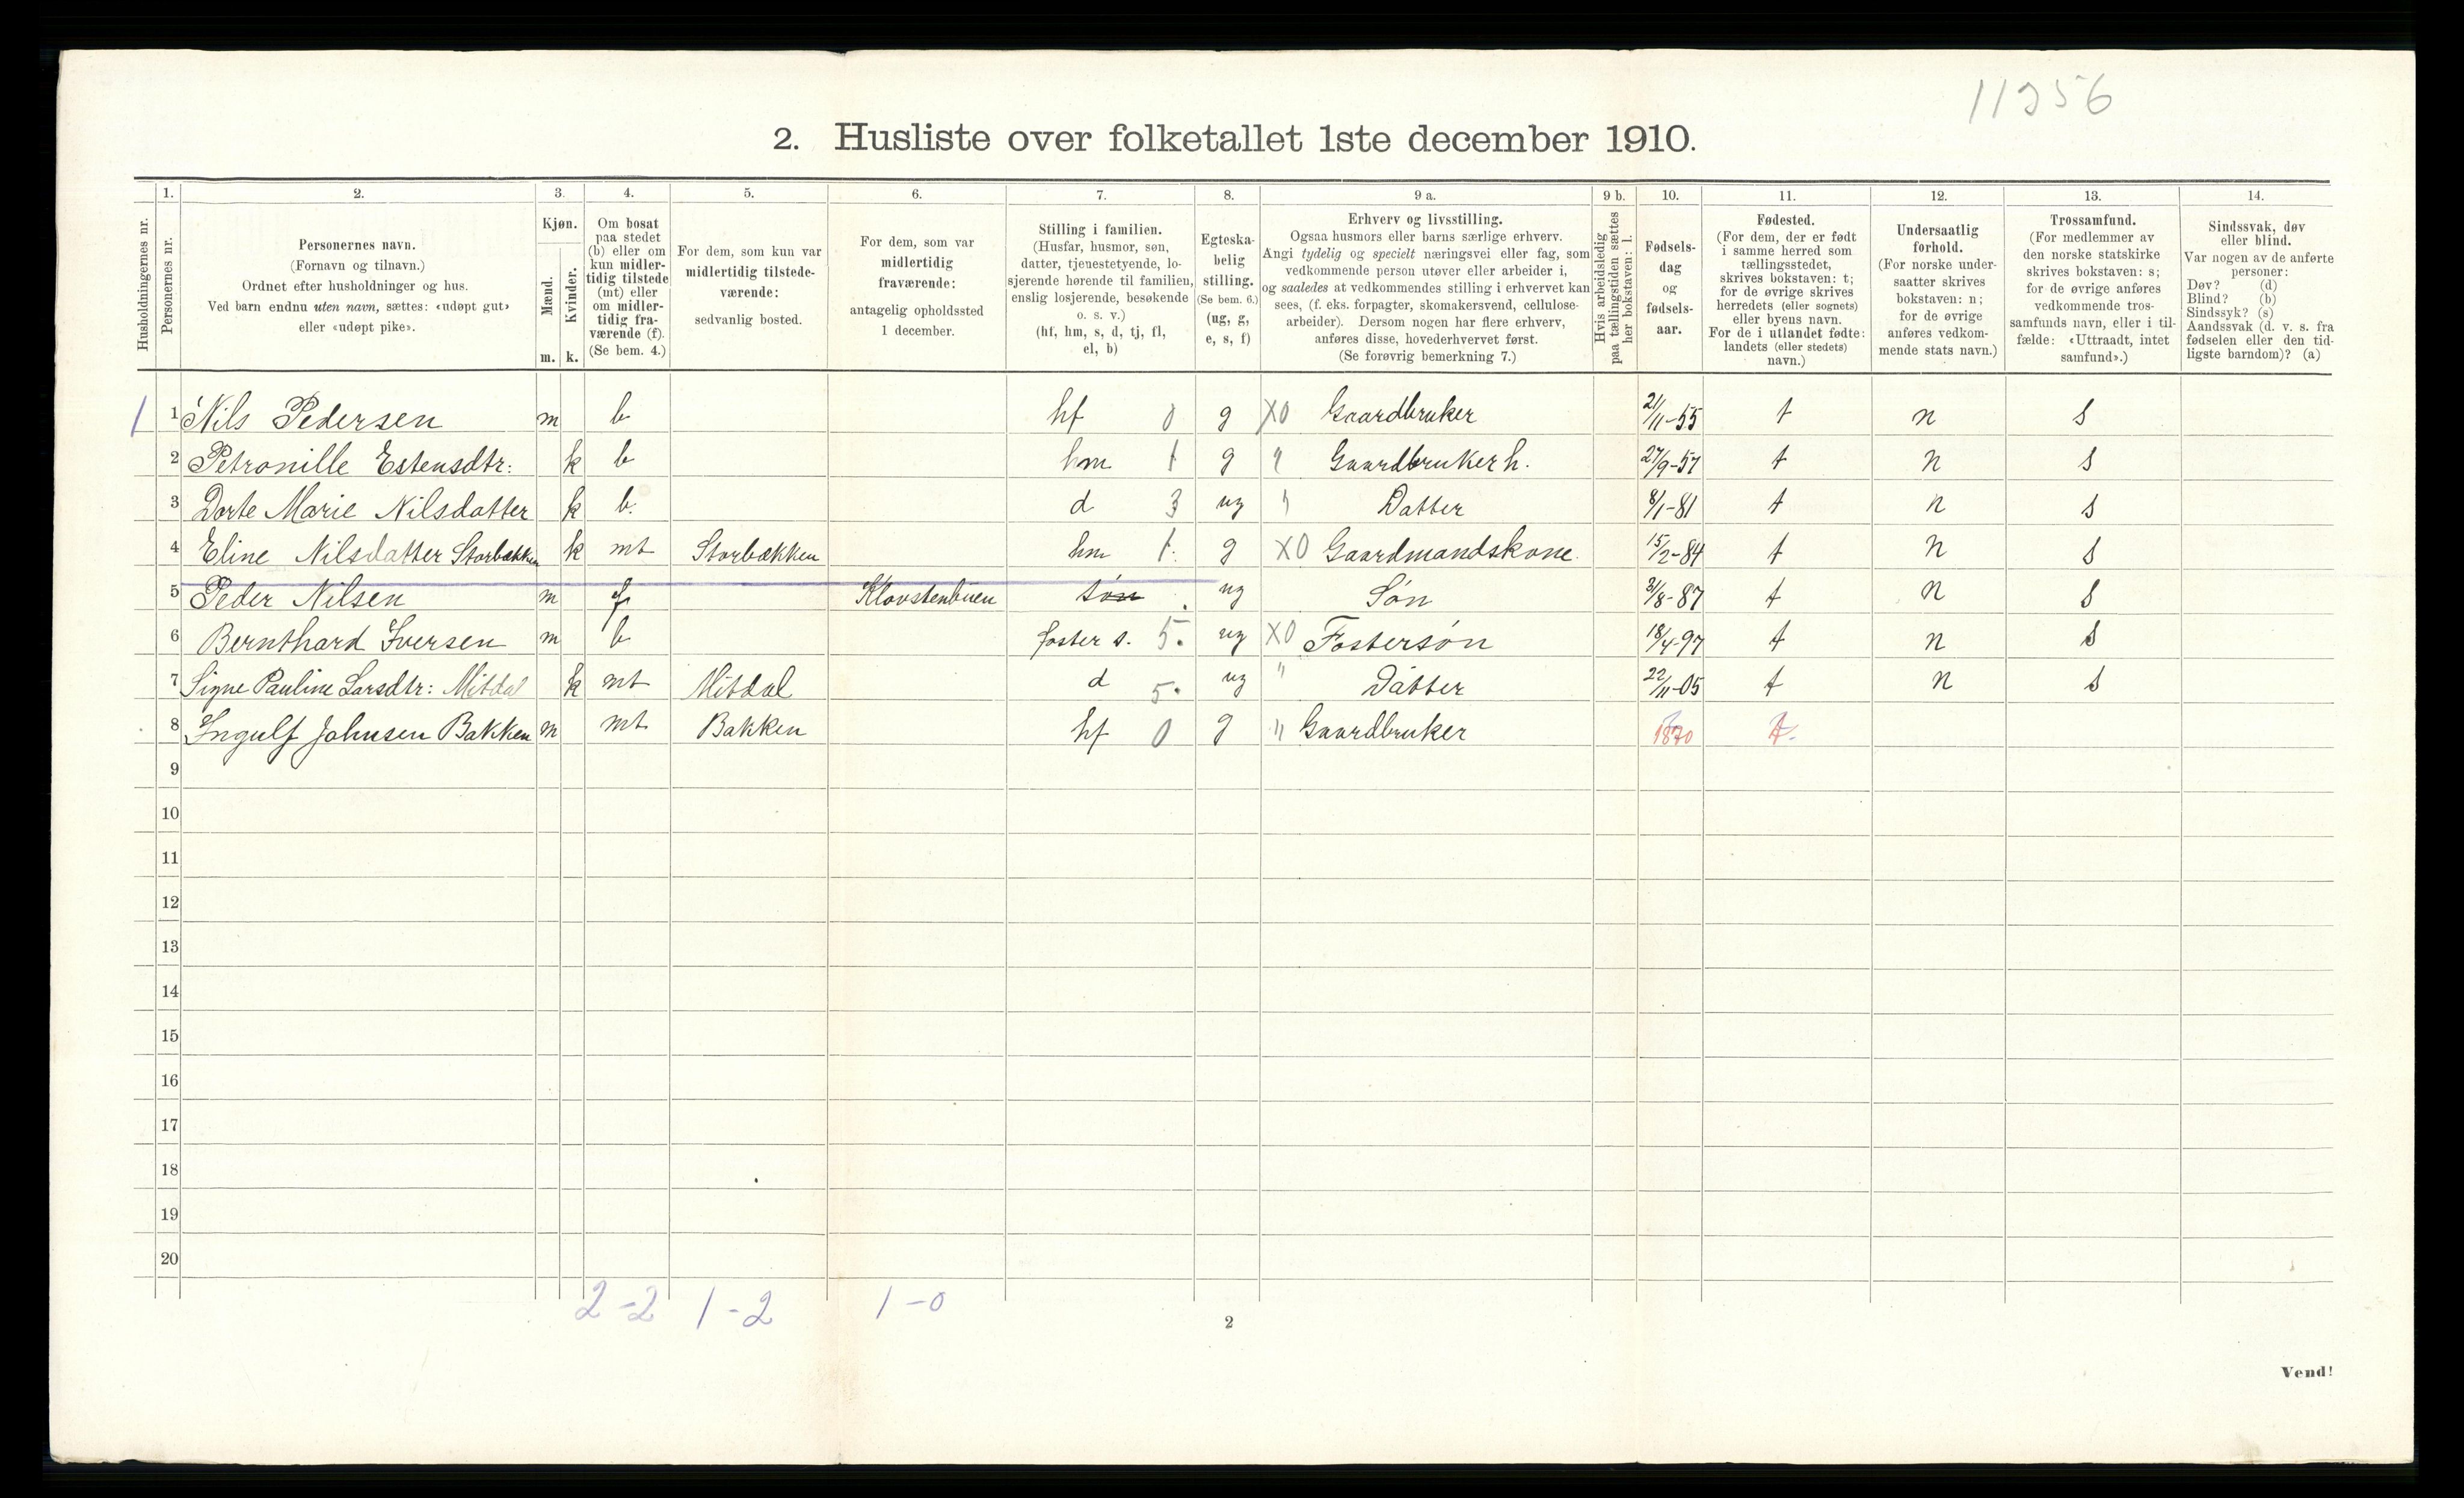 11256
2. Husliste over folketallet 1ste december 1910.
Husholdningernes nr.
1.
Personernes nr.
2.
Personernes navn.
(Fornavn og tilnavn.)
Ordnet efter husholdninger og hus.
Ved barn endnu uten navn, sættes: «udøpt gut»
eller «udøpt pike».
3.
Kjøn.
Mænd.
Kvinder.
m. k.
4.
Om bosat
paa stedet
(b) eller om
kun midler-
tidig tilstede
(mt) eller
om midler-
tidig fra-
værende (f).
(Se bem. 4.)
5.
For dem, som kun var
midlertidig tilstede-
værende:
sedvanlig bosted.
6.
For dem, som var
midlertidig
fraværende:
antagelig opholdssted
1 december.
7.
Stilling i familien.
(Husfar, husmor, søn,
datter, tjenestetyende, lo-
sjerende hørende til familien,
enslig losjerende, besøkende
o. s. v.)
(hf, hm, s, d, tj, fl,
el, b)
8.
Egteska-
belig
stilling.
(Se bem. 6.)
(ug, g,
e, s, f)
9 a.
Erhverv og livsstilling.
Ogsaa husmors eller barns særlige erhverv.
Angi tydelig og specielt næringsvei eller fag, som
vedkommende person utøver eller arbeider i,
og saaledes at vedkommendes stilling i erhvervet kan
sees, (f. eks. forpagter, skomakersvend, cellulose-
arbeider). Dersom nogen har flere erhverv,
anføres disse, hovederhvervet først.
(Se forøvrig bemerkning 7.)
9 b.
Hvis arbeidsledig
paa tællingstiden sættes
her bokstaven: l.
10.
Fødsels-
dag
og
fødsels-
aar.
11.
Fødested.
(For dem, der er født
i samme herred som
tællingsstedet,
skrives bokstaven: t;
for de øvrige skrives
herredets (eller sognets)
eller byens navn.
For de i utlandet fødte:
landets (eller stedets)
navn.)
12.
Undersaatlig
forhold.
(For norske under-
saatter skrives
bokstaven: n;
for de øvrige
anføres vedkom-
mende stats navn.)
13.
Trossamfund.
(For medlemmer av
den norske statskirke
skrives bokstaven: s;
for de øvrige anføres
vedkommende tros-
samfunds navn, eller i til-
fælde: «Uttraadt, intet
samfund».)
14.
Sindssvak, døv
eller blind.
Var nogen av de anførte
personer:
Døv? (d)
Blind? (b)
Sindssyk? (s)
Aandssvak (d. v. s. fra
fødselen eller den tid-
ligste barndom)? (a)
1 1 Nils Pedersen m b hf 0 g X0 Gaardbruker 21/11-55 t n s
2 Petronille Estensdtr: k b hm 1 g " Gaardbruker h. 27/9-57 t n s
3 Dorte Marie Nilsdatter k b. d 3 ug " Datter 8/1-81 t n s
4 Eline Nilsdatter Storbækken k mt Storbækken hm 1. g X0 Gaardmandskone. 15/2-84 t n s
5 Peder Nilsen m f Klovstenbuen søn ug Søn 31/8-87 t n s
6 Bernthard Iversen m b foster s. 5. ug X0 Fostersøn 18/4-97 t n s
7 Signe Pauline Larsdtr: Mitdal k mt Mitdal d 5. ug " Datter 22/11-05 t n s
8 Ingulf Johnsen Bakken m mt Bakken hf 0 g " Gaardbruker 1870 t.
9
10
11
12
13
14
15
16
17
18
19
20
2-2 1-2 1-0
2
Vend!